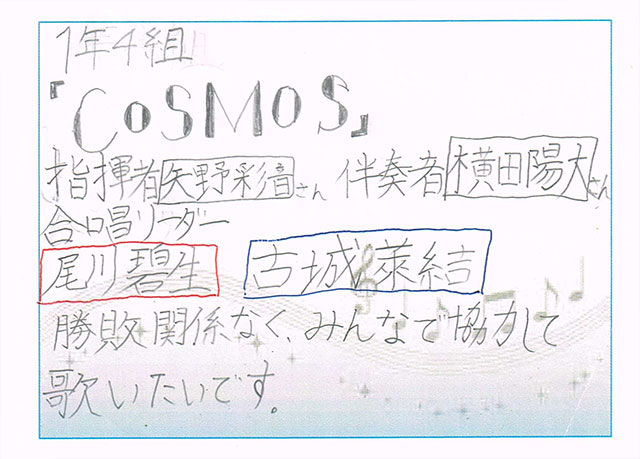 1年4組
『COSMOS』
指揮者矢野彩音さん 伴奏者横田陽大さん
合唱リーダー
尾川碧生 古城萊結
勝敗関係なく、みんなで協力して
歌いたいです。